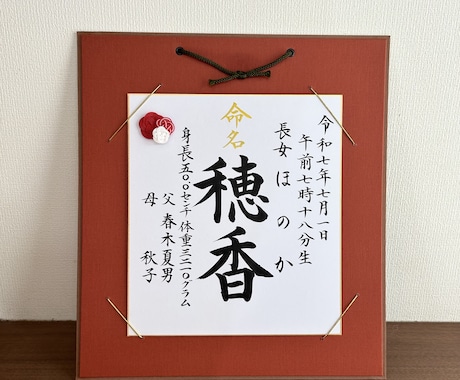 令和七年七月一日
午前七時十八分生
長女ほのか
命名
穂香
身長五〇.〇センチ体重三二一〇グラム
父春木夏男
母秋子